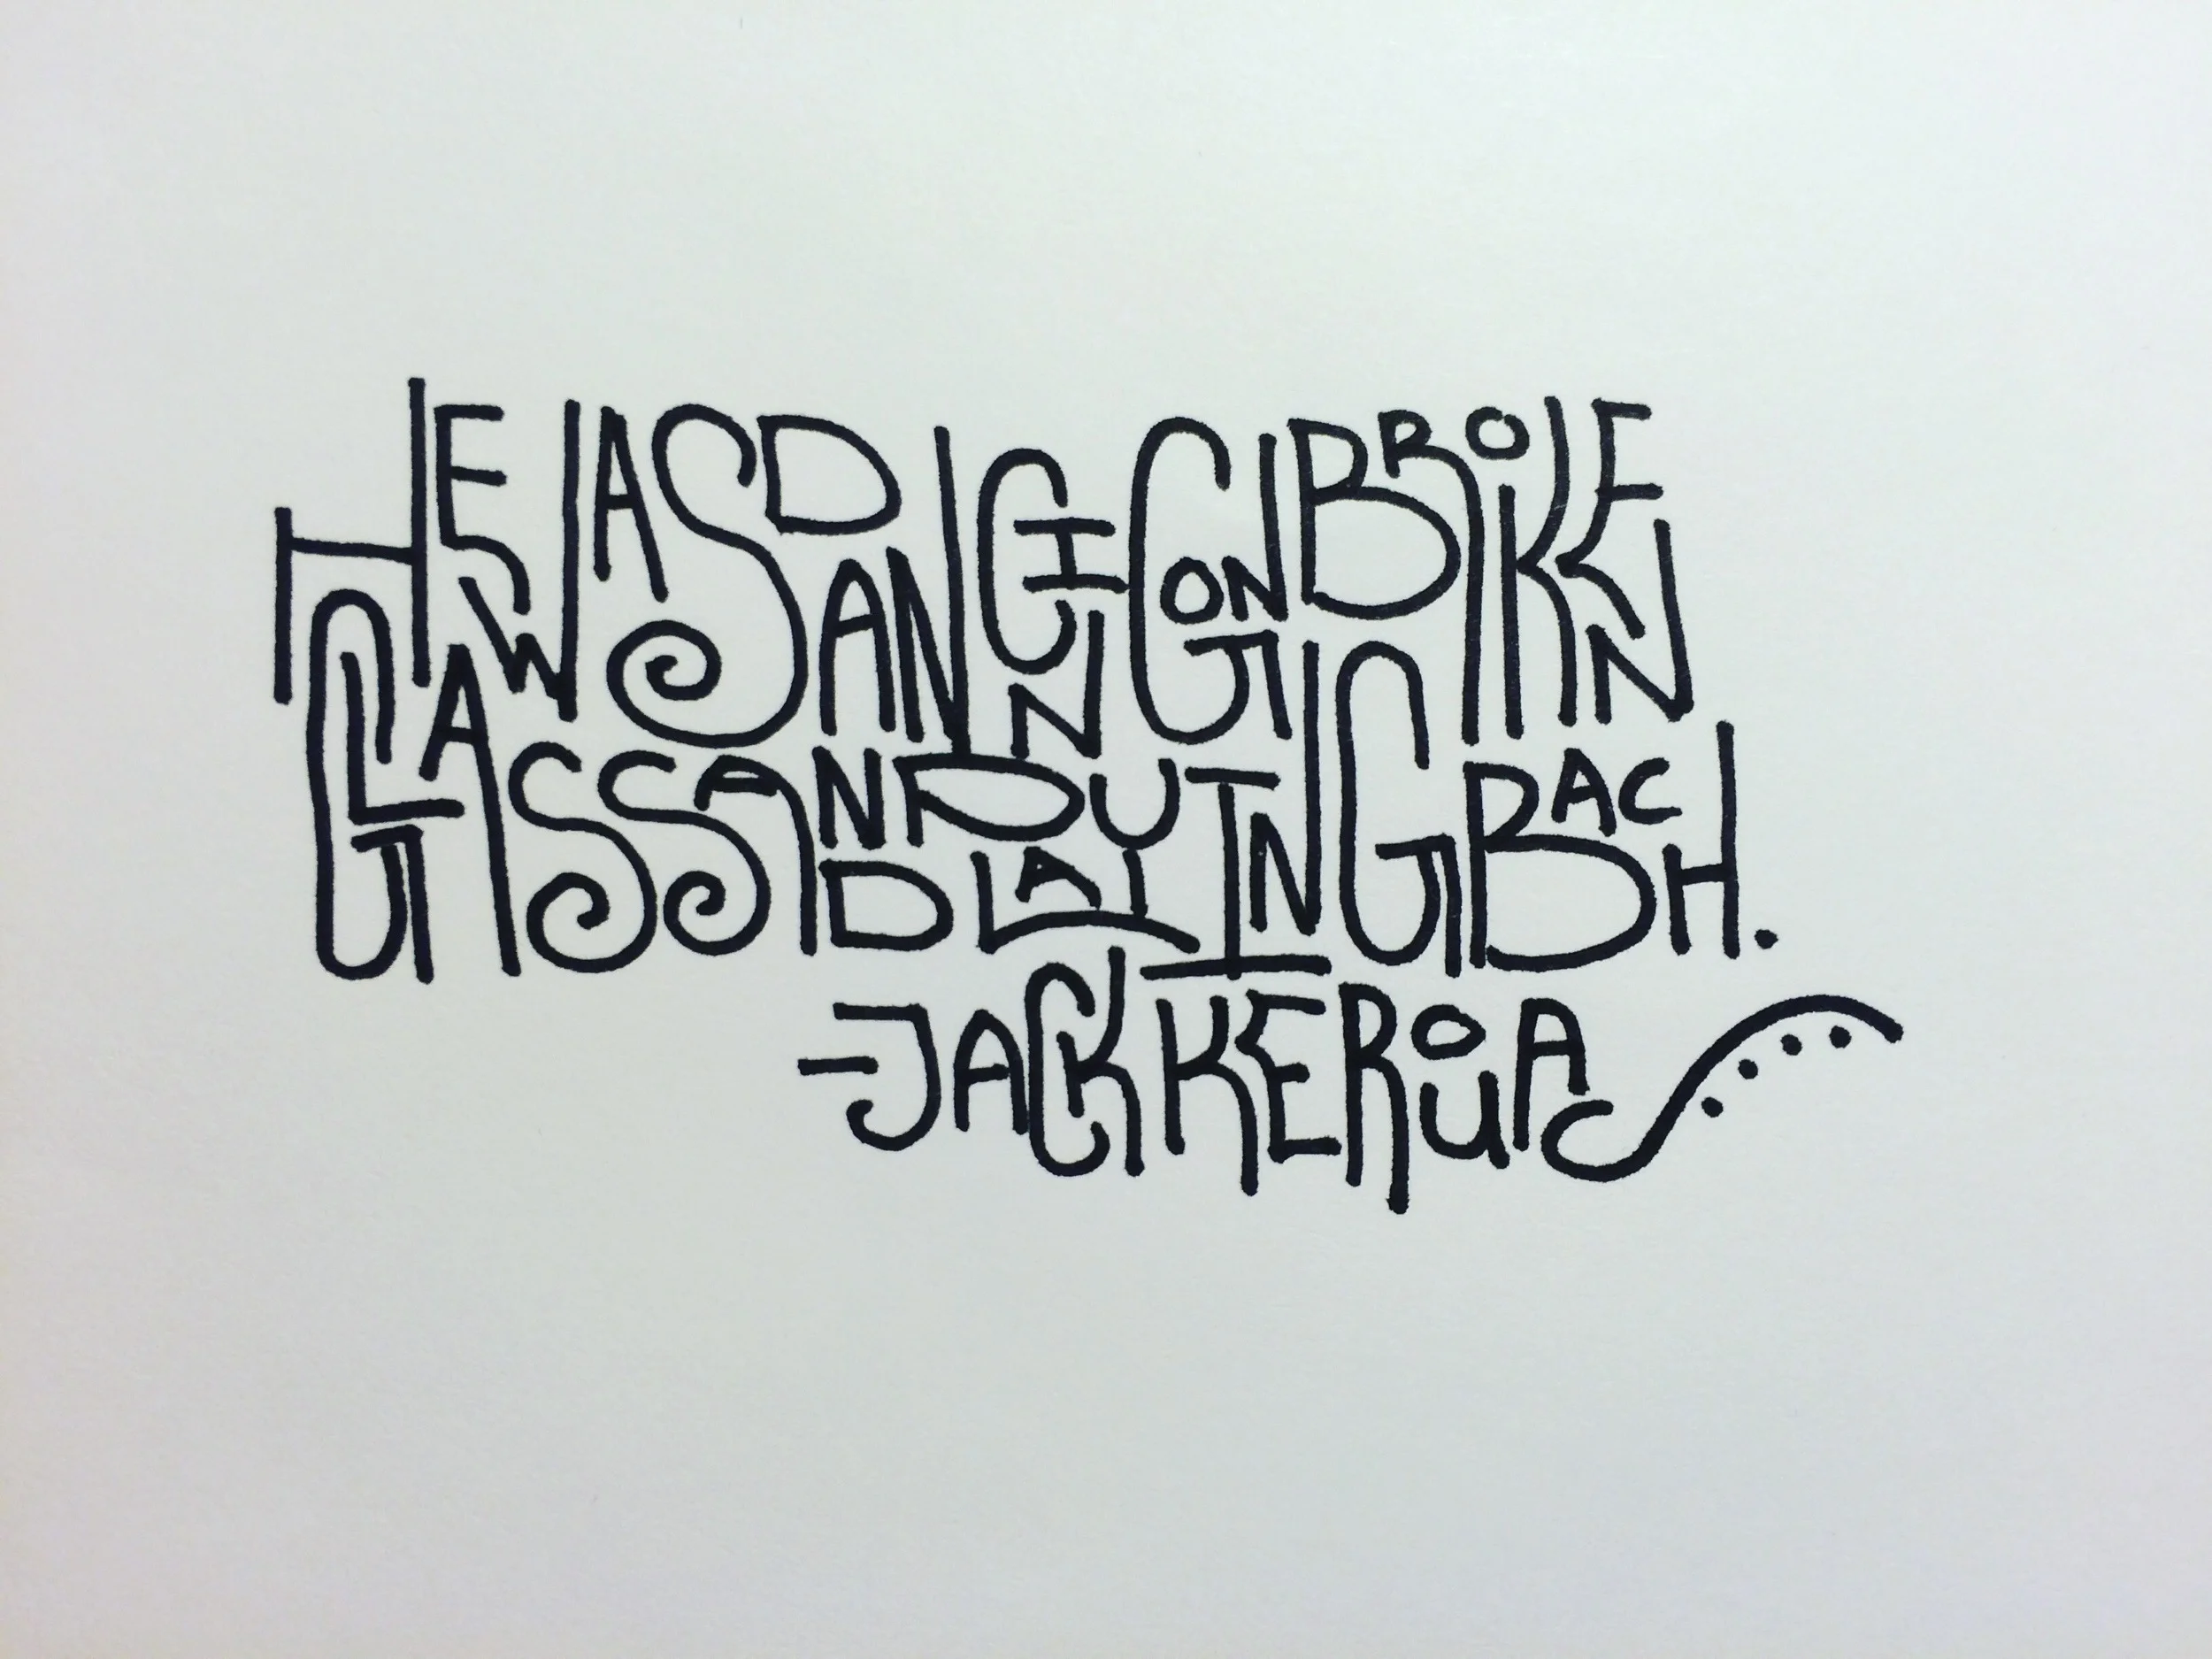 HE WAS DANCING ON BROKEN
GLASS AND PLAYING BACH.
-JACK KEROUAC